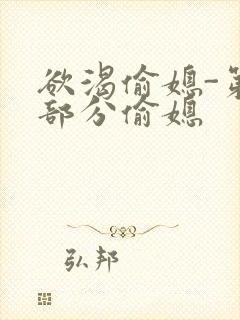 欲渴偷媳-第
部分偷媳
弘邦